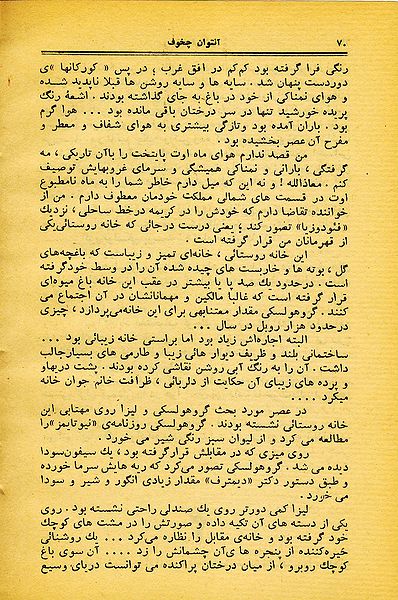 ۷۰ آنتوان چخوف
رنگی فرا گرفته بود کم‌کم در افق غرب ، در پس « کورکانها »ی
دوردست پنهان شد . سایه ها و سایه روشن ها قبلا ناپدید شده
و هوای نمناکی از خود در باغ به جای گذاشته بودند . اشعهٔ رنگ
پریده خورشید تنها در سر درختان باقی مانده بود ... هوا گرم
بود . باران آمده بود وتازگی بیشتری به هوای شفاف و معطر و
مفرح آن عصر بخشیده بود .
من قصد ندارم هوای ماه اوت پایتخت را باآن تاریکی ، مه
گرفتگی ، بارانی و نمناکی همیشگی و سرمای غروبهایش توصیف
کنم . معاذالله ! و نه این که میل دارم خاطر شما را به ماه نامطبوع
اوت در قسمت های شمالی مملکت خودمان معطوف دارم . من از
خواننده تقاضا دارم که خودش را در کریمه درخط ساحلی ، نزدیك
«فئودوزیا» تصور کند ؛ یعنی درست درجائی که خانه روستائی‌یکی
از قهرمانان من قرار گرفته است .
این خانه روستائی ، خانه‌ای تمیز و زیباست که باغچه‌های
گل ، بوته ها و خاربست های چیده شده آن را در وسط خودگرفته
است . درحدود یك صد پا یا بیشتر در عقب این خانه باغ میوه‌ای
قرار گرفته است که غالبا مالکین و مهمانانشان در آن اجتماع می
کنند . گروهولسکی مقدار معتنابهی برای این خانه‌می‌پردازد ، چیزی
درحدود هزار روبل در سال ...
البته اجاره‌اش زیاد بود اما براستی خانه زیبائی بود ...
ساختمانی بلند و ظریف دیوار هائی زیبا و طارمی های بسیارجالب
داشت . آن را به رنگ آبی روشن نقاشی کرده بودند . پشت دربهاو
و پرده های زیبای آن حکایت از دلربائی ، ظرافت خانم جوان خانه
میکرد ....
در عصر مورد بحث گروهولسکی و لیزا روی مهتابی این
خانه روستائی نشسته بودند . گروهولسکی روزنامه‌ی «نیوتایمز»را
مطالعه می کرد و از لیوان سبز رنگی شیر می خورد .
روی میزی که در مقابلش قرارگرفته بود ، یك سیفون‌سودا
دیده می شد . گروهولسکی تصور می‌کرد که ریه هایش سرما خورده
و طبق دستور دکتر «دیمترف» مقدار زیادی انگور و شیر و سودا
می خورد .
لیزا کمی دورتر روی یك صندلی راحتی نشسته بود . روی
یکی از دسته های آن تکیه داده و صورتش را در مشت های کوچك
خود گرفته بود و خانه‌ی مقابل را نظاره می‌کرد ... یك روشنائی
خیره‌کننده از پنجره ها‌ی‌آن چشمانش را زد .... آن سوی باغ
کوچك روبرو ، از میان درختان پراکنده می توانست دریای وسیع